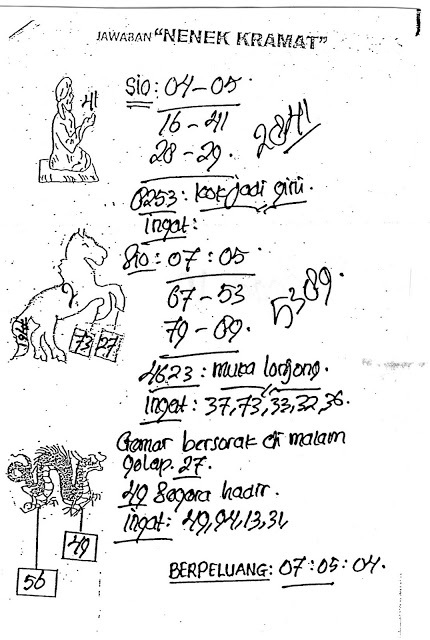 JAWABAN "NENEK KRAMAT"
41
Sio: 04-05.
16-41
28-29.
2841
8253: Kok jadi gini.
Ingat:
Sio: 07:05
67-53
79-89.
5389.
73 27
4623: muka lonjong.
Ingat: 37,73,33,32,36.
Gemar bersorak di malam
golap. 27.
49 Segera hadir.
Ingat: 49,94,13,31
49
56
BERPELUANG: 07:05:04.